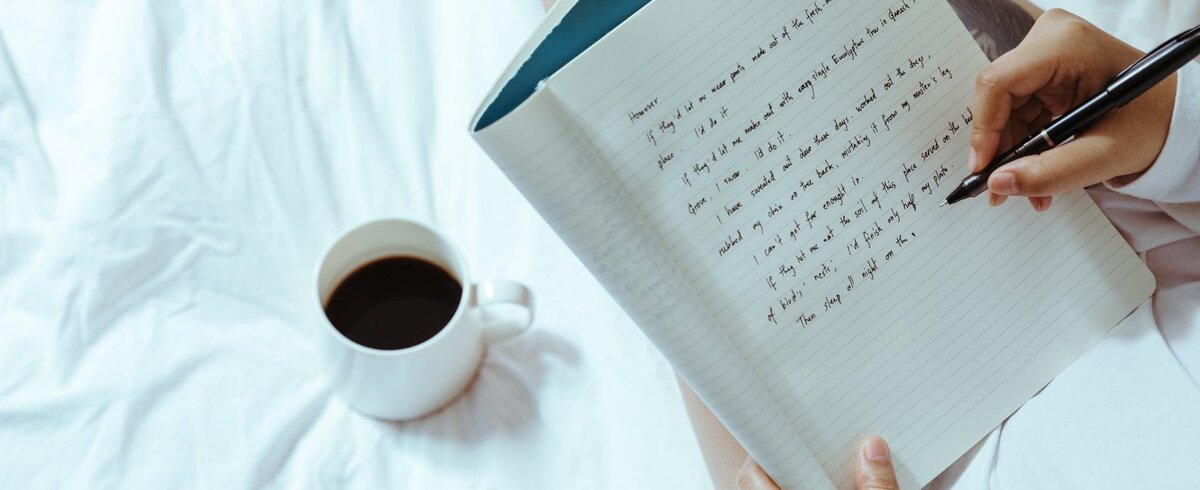 However
If they'd let me wear pants made out of the fresh
place. I'd do it.
If they'd let me make out with every single Eucalyptus tree in
Grove. I swear. I'd do it.
I have sweated out dear these days. worked out the dregs,
rubbed my chin on tree bark, mistaking it from my master's leg
I can't get far enough in.
If they let me eat the soil of this place served on the
of birds' nests; I'd finish only half my plate.
Then sleep all night on the